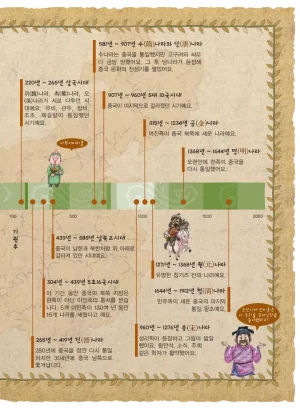 581년 ~ 907년 수(隋)나라와 당(唐)나라
수나라는 중국을 통일했지만 고구려와 싸우
다 금방 망했어요. 그 후 당나라가 등장해
중국 문화의 전성기를 열었어요.
220년 ~ 265년 삼국시대
위(魏)나라, 촉(蜀)나라, 오
(吳)나라가 서로 다투던 시
대예요. 유비, 관우, 장비,
조조, 제갈량이 등장했던
시기예요.
907년 ~ 960년 5대 10국시대
중국이 마지막으로 갈라졌던 시기예요.
1115년 ~ 1234년 금(金)나라
여진족이 중국 북쪽에 세운 나라예요.
1368년 ~ 1644년 명(明)나라
오랜만에 한족이 중국을
다시 통일했어요.
100
500
1000
1500
2000
기원후
439년 ~ 589년 남북조시대
중국이 남쪽과 북쪽처럼 위, 아래로
갈라져 있던 시대예요.
1271년 ~ 1368년 원(元)나라
유명한 칭기즈 칸의 나라예요.
304년 ~ 439년 5호16국시대
이 기간 동안 중국의 북쪽 지방은
한족이 아닌 이민족의 통치를 받습
니다. 5개 이민족이 130여 년 동안
16개 나라를 세웠다고 해요.
1644년 ~ 1912년 청(淸)나라
만주족이 세운 중국의 마지막
통일 왕조예요.
960년 ~ 1276년 송(宋)나라
성리학이 등장하고 그림이 발달
했어요. 왕안석, 소식, 주희
같은 학자가 활약했어요.
265년 ~ 419년 진(晉)나라
280년에 중국을 잠깐 다시 통일
하지만 304년에 중국 남쪽으로
쫓겨납니다.